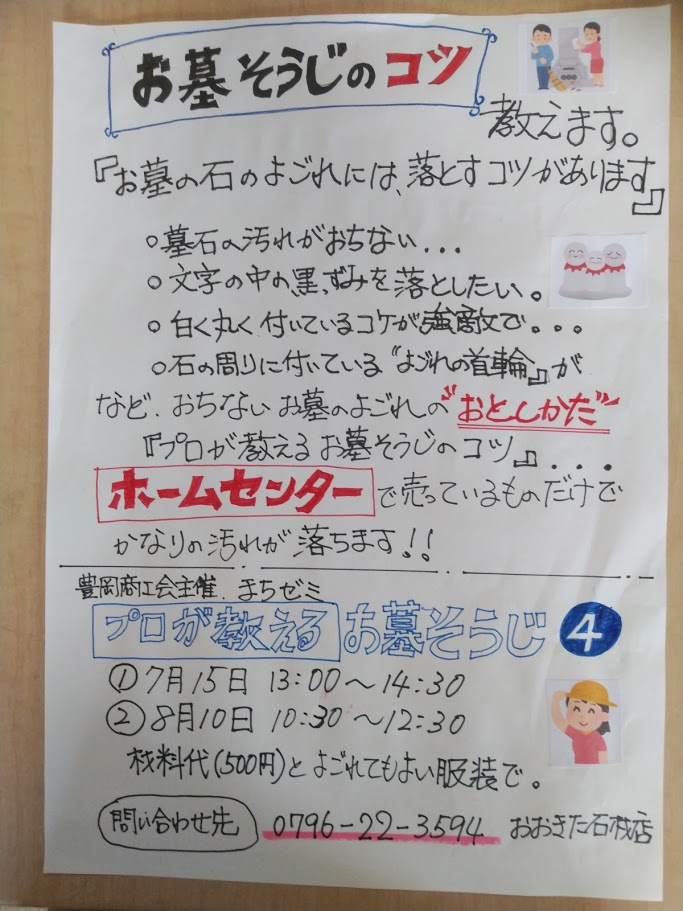 お墓そうじのコツ
教えます。
『お墓の石のよごれには、落とすコツがあります』
○墓石の汚れがおちない...
○文字の中の黒ずみを落としたい。
○白く丸く付いているコケが強敵で。。。
○石の周りに付いている〝よごれの首輪』が
など、おちないお墓のよごれの〝おとしかた〟
『プロが教えるお墓そうじのコツ』....
ホームセンターで売っているものだけで
かなりの汚れが落ちます!!
豊岡商工会主催、まちゼミ
プロが教えるお墓そうじ4
①7月15日 13:00～14:30
②8月10日 10:30～12:30
材料代(500円)とよごれてもよい服装で。
問い合わせ先 0796-22-3594 おおきた石材店